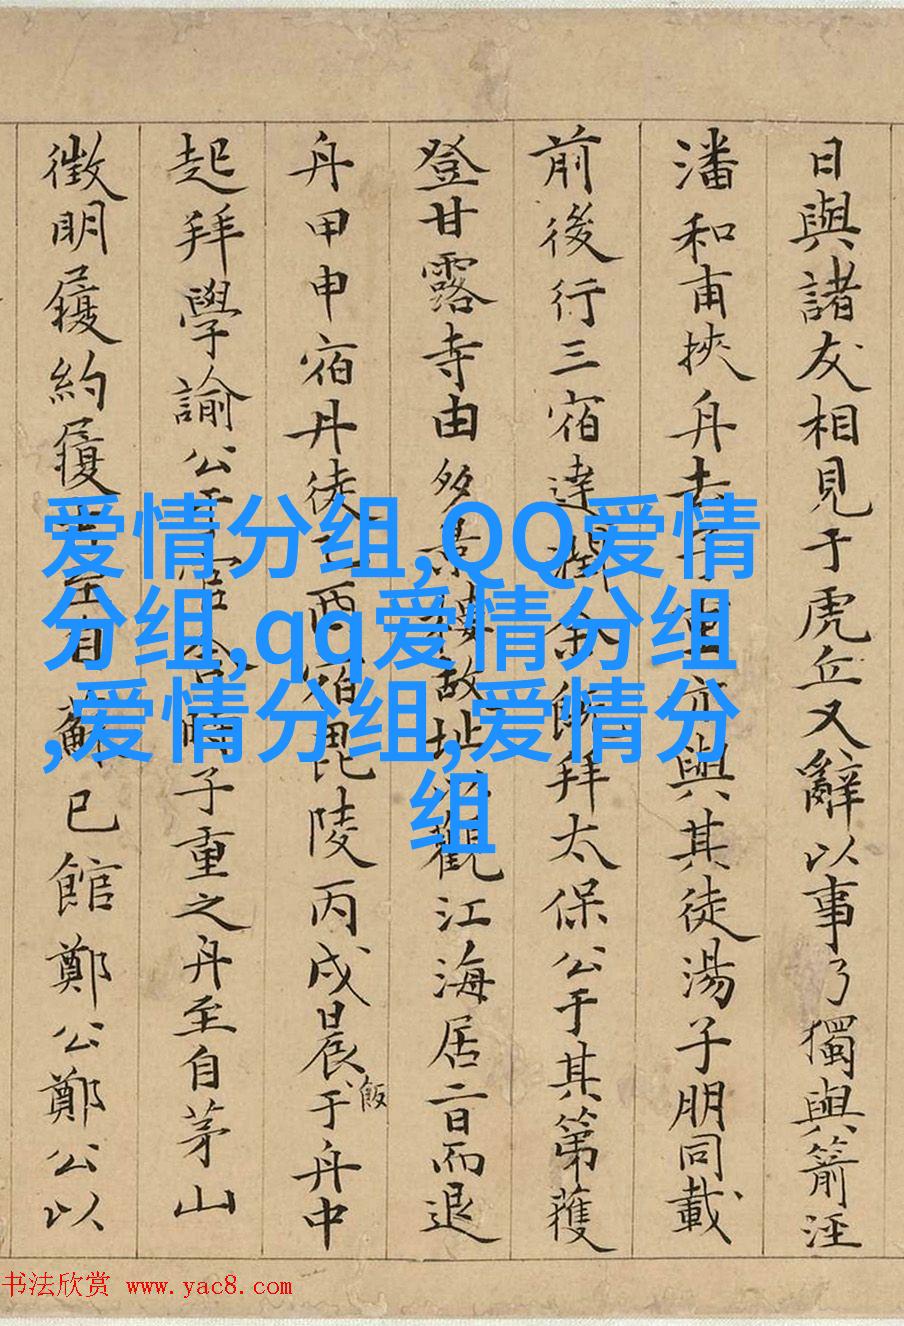 日與諸友相見于虎丘又辭以事乃獨與箭涇
潘和甫挾舟去子重亦與其徒湯子朋同載
前後行三宿達潤余師拜太保公于其第獲
登甘露寺由多景樓故址以觀江海居二日而退
舟甲申宿丹徒乙酉宿毘陵丙戌晨飯于舟中
起拜學諭公于官舍時子重之舟至自茅山
徵明履約履吉至自蘇已館鄭公鄭公以
爱情分组,QQ爱情
分组,qq爱情分组
,爱情分组,爱情分
组
书法欣赏 www.yac8.com